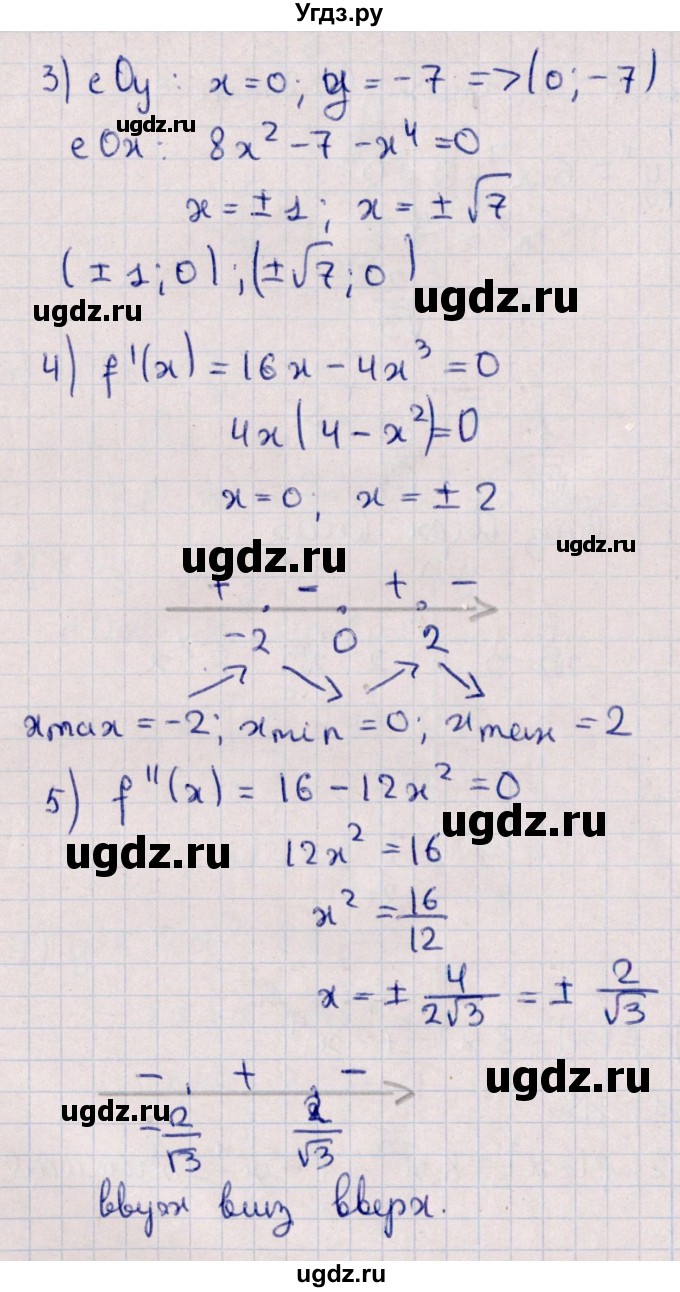 Угдз.ру
3) с Oy : x = 0; y = -7 => (0; -7)
ugdz.ru
с Ox: 8x² - 7 - x⁴ = 0
x = ± 1; x = ± √7
(± 1; 0); (± √7; 0)
ugdz.ru
ugdz.ru
4) f'(x) = 16x - 4x³ = 0
4x(4 - x²) = 0
x = 0; x = ± 2
ugdz.ru
ugdz.ru
+ - + -
-2 0 2
x max = -2; x min = 0; x max = 2
5) f''(x) = 16 - 12x² = 0
ugdz.ru
ugdz.ru
12x² = 16
x² = 16/12
x = ± 4/2√3 = ± 2/√3
- + -
ugdz.ru
ugdz.ru
-2/√3 2/√3
вниз вверх.
ugdz.ru